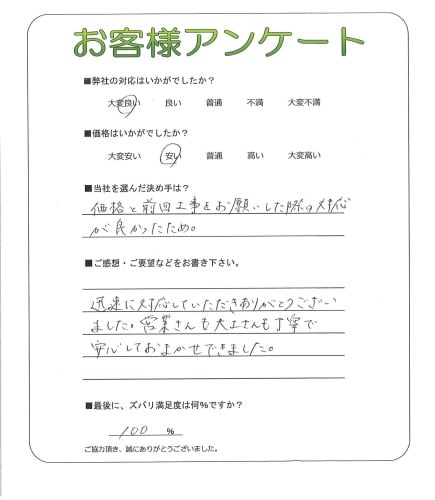 お客様アンケート
■弊社の対応はいかがでしたか？
大変良い 良い 普通 不満 大変不満
■価格はいかがでしたか？
大変安い 安い 普通 高い 大変高い
■当社を選んだ決め手は？
価格と前回工事をお願いした際の対応
が良かったため。
■ご感想・ご要望などをお書き下さい。
迅速に対応していただきありがとうござい
ました。営業さんも大工さんも丁寧で
安心しておまかせできました。
■最後に、ズバリ満足度は何%ですか？
100 %
ご協力頂き、誠にありがとうございました。